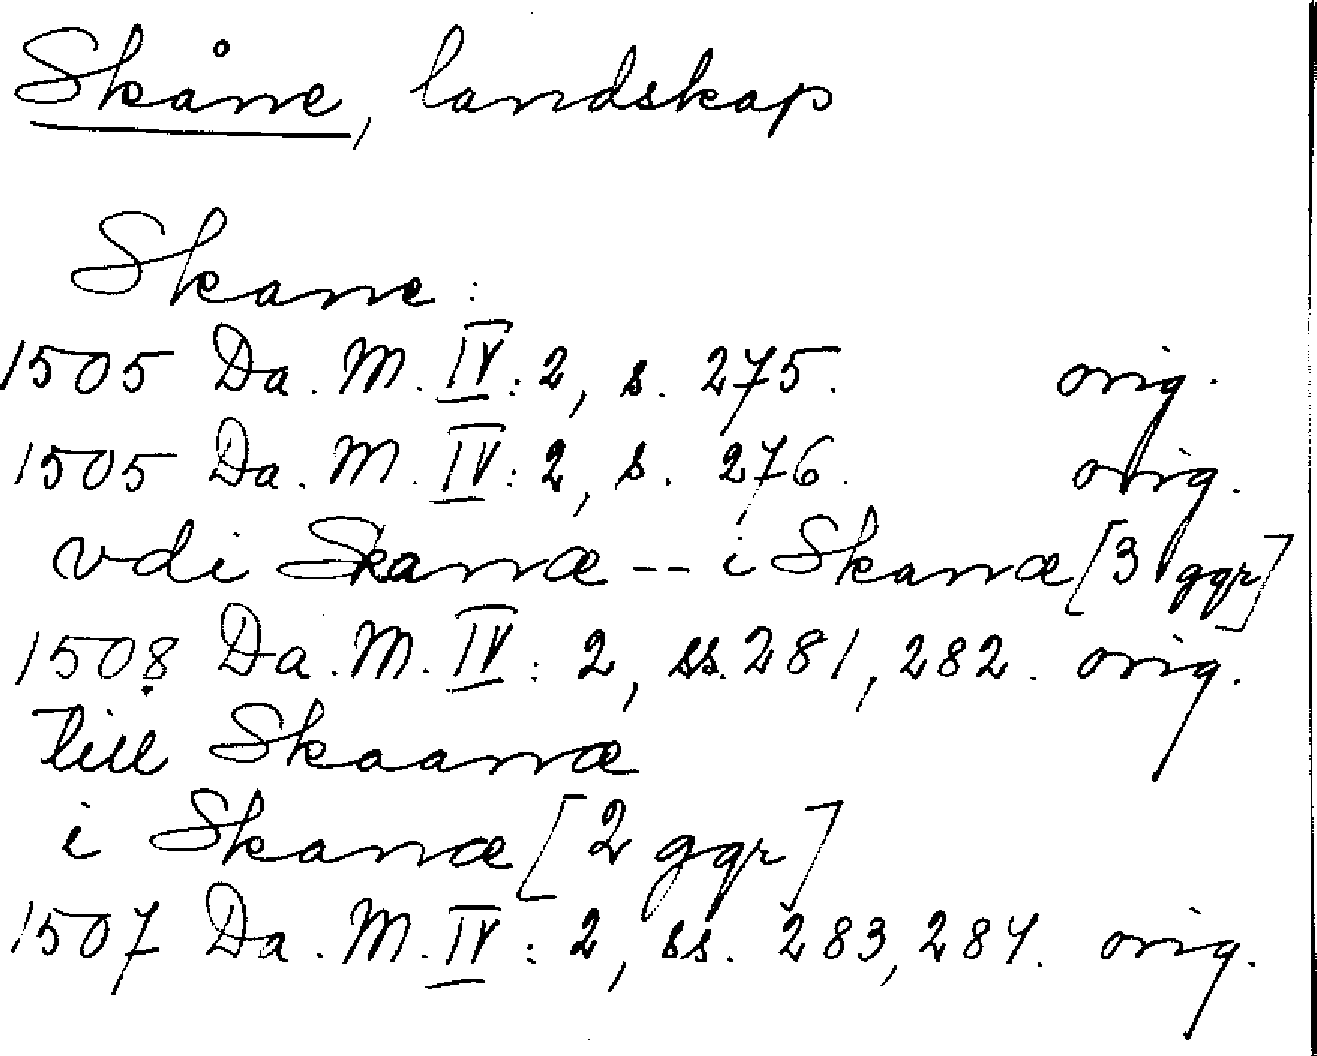 Skåne, landskap
Skane:
1505 Da. M. IV: 2, s. 275. orig.
1505 Da. M. IV: 2, s. 276. orig.
vdi Skanæ -- i Skanæ [3 ggr]
1508 Da. M. IV: 2, ss. 281, 282. orig.
till Skaanæ
i Skanæ [2 ggr]
1507 Da. M. IV: 2, ss. 283, 284. orig.